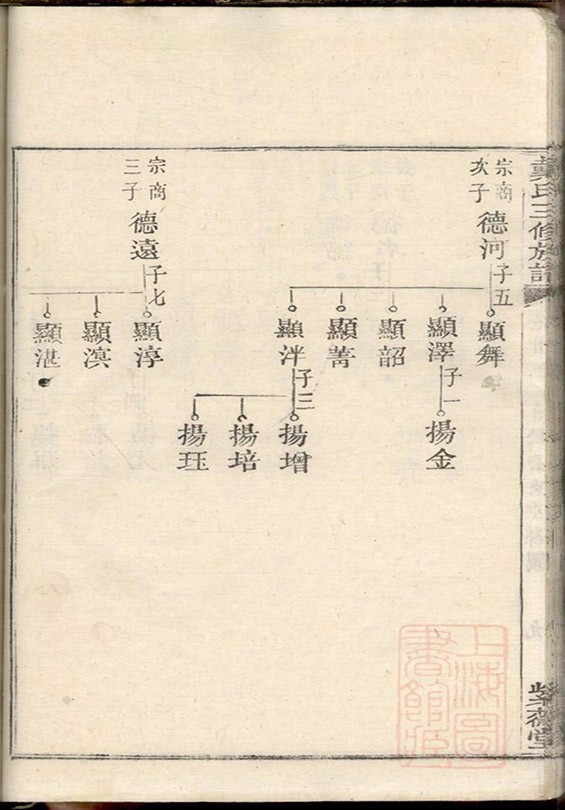 戴氏三修族譜
紫薇堂
宗商
次子
德河
子五
顯舞
顯澤
子一
揚金
顯韶
顯菁
顯泮
子三
揚增
揚培
揚珏
宗商
三子
德遠
子七
顯淳
顯濱
顯湛
上海圖
書館藏